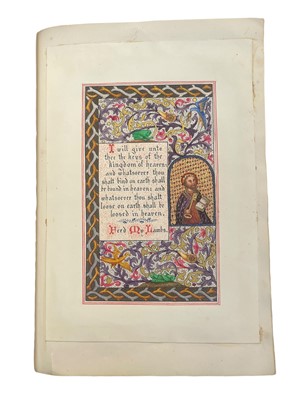 I will give unto
thee the keys of the
kingdom of heaven:
and whatsoever thou
shalt bind on earth shall
be bound in heaven: and
whatsoever thou shalt
loose on earth shall be
loosed in heaven.
Feed My Lambs.